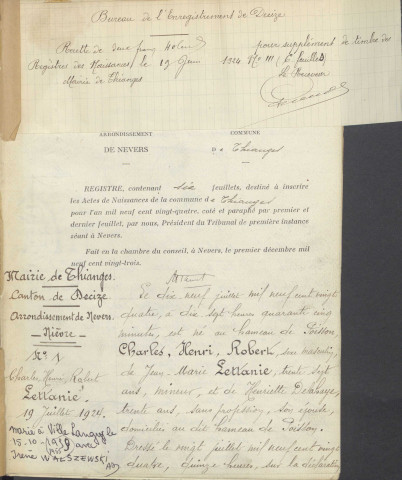 Bureau de l'Enregistrement de Decize
Recette de deux francs pour supplément de timbre des
Registres des Naissances, le 19 Juin 1924 No M (6 feuillets)
Mairie de Thianges Le Receveur
ARRONDISSEMENT COMMUNE
DE NEVERS De Thianges
REGISTRE, contenant six feuillets, destiné à inscrire
les Actes de Naissances de la commune de Thianges
pour l'an mil neuf cent vingt-quatre, coté et paraphé par premier et
dernier feuillet, par nous, Président du Tribunal de première instance
séant à Nevers.
Fait en la chambre du conseil, à Nevers, le premier décembre mil
neuf cent vingt-trois.
Mairie de Thianges.
Canton de Decize
Arrondissement de Nevers.
Nièvre
N° 1
Charles, Henri, Robert
Lettanie.
19 juillet 1924.
marié à Ville Langy le
15.10.-1959 avec
Irène WALSZEWSKI
Le dix neuf juillet mil neuf cent vingt
quatre, à dix sept heures quarante cinq
minutes, est né au hameau de
Charles, Henri, Robert, sexe masculin,
de Jean-Marie Lettanie, trente sept
ans, mineur, et de Henriette Delahaye,
trente ans, sans profession, son épouse,
domiciliés au dit hameau de
Dressé le vingt juillet mil neuf cent vingt
quatre, quinze heures, sur la déclaration